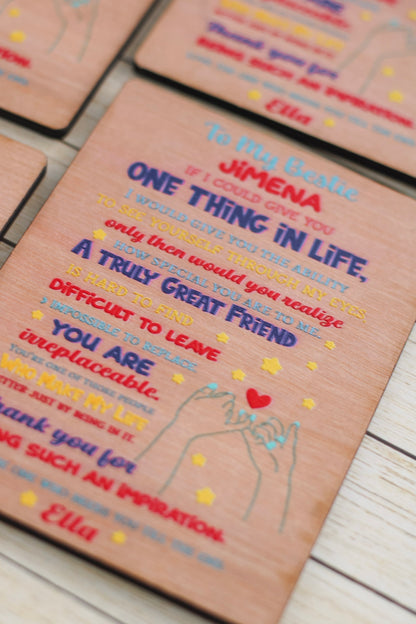 To My Bestie
JiMENA
IF I COULD GIVE YOU
ONE THiNG iN LiFE,
I WOULD GIVE YOU THE ABILITY
TO SEE YOURSELF THROUGH MY EYES.
only then would you realize
HOW SPECIAL YOU ARE TO ME.
A TRULY GREAT FRIEND
IS HARD TO FIND
DiFFiCULT TO LEAVE
& IMPOSSIBLE TO REPLACE.
YOU ARE
irreplaceable.
YOU'RE ONE OF THOSE PEOPLE
WHO MAKE MY LIFE
BETTER JUST BY BEING IN IT.
Thank you for
BEING SUCH AN iMPiRATiON.
Ella
Thank you for
BEING SUCH AN iMPiRATiON.
Ella